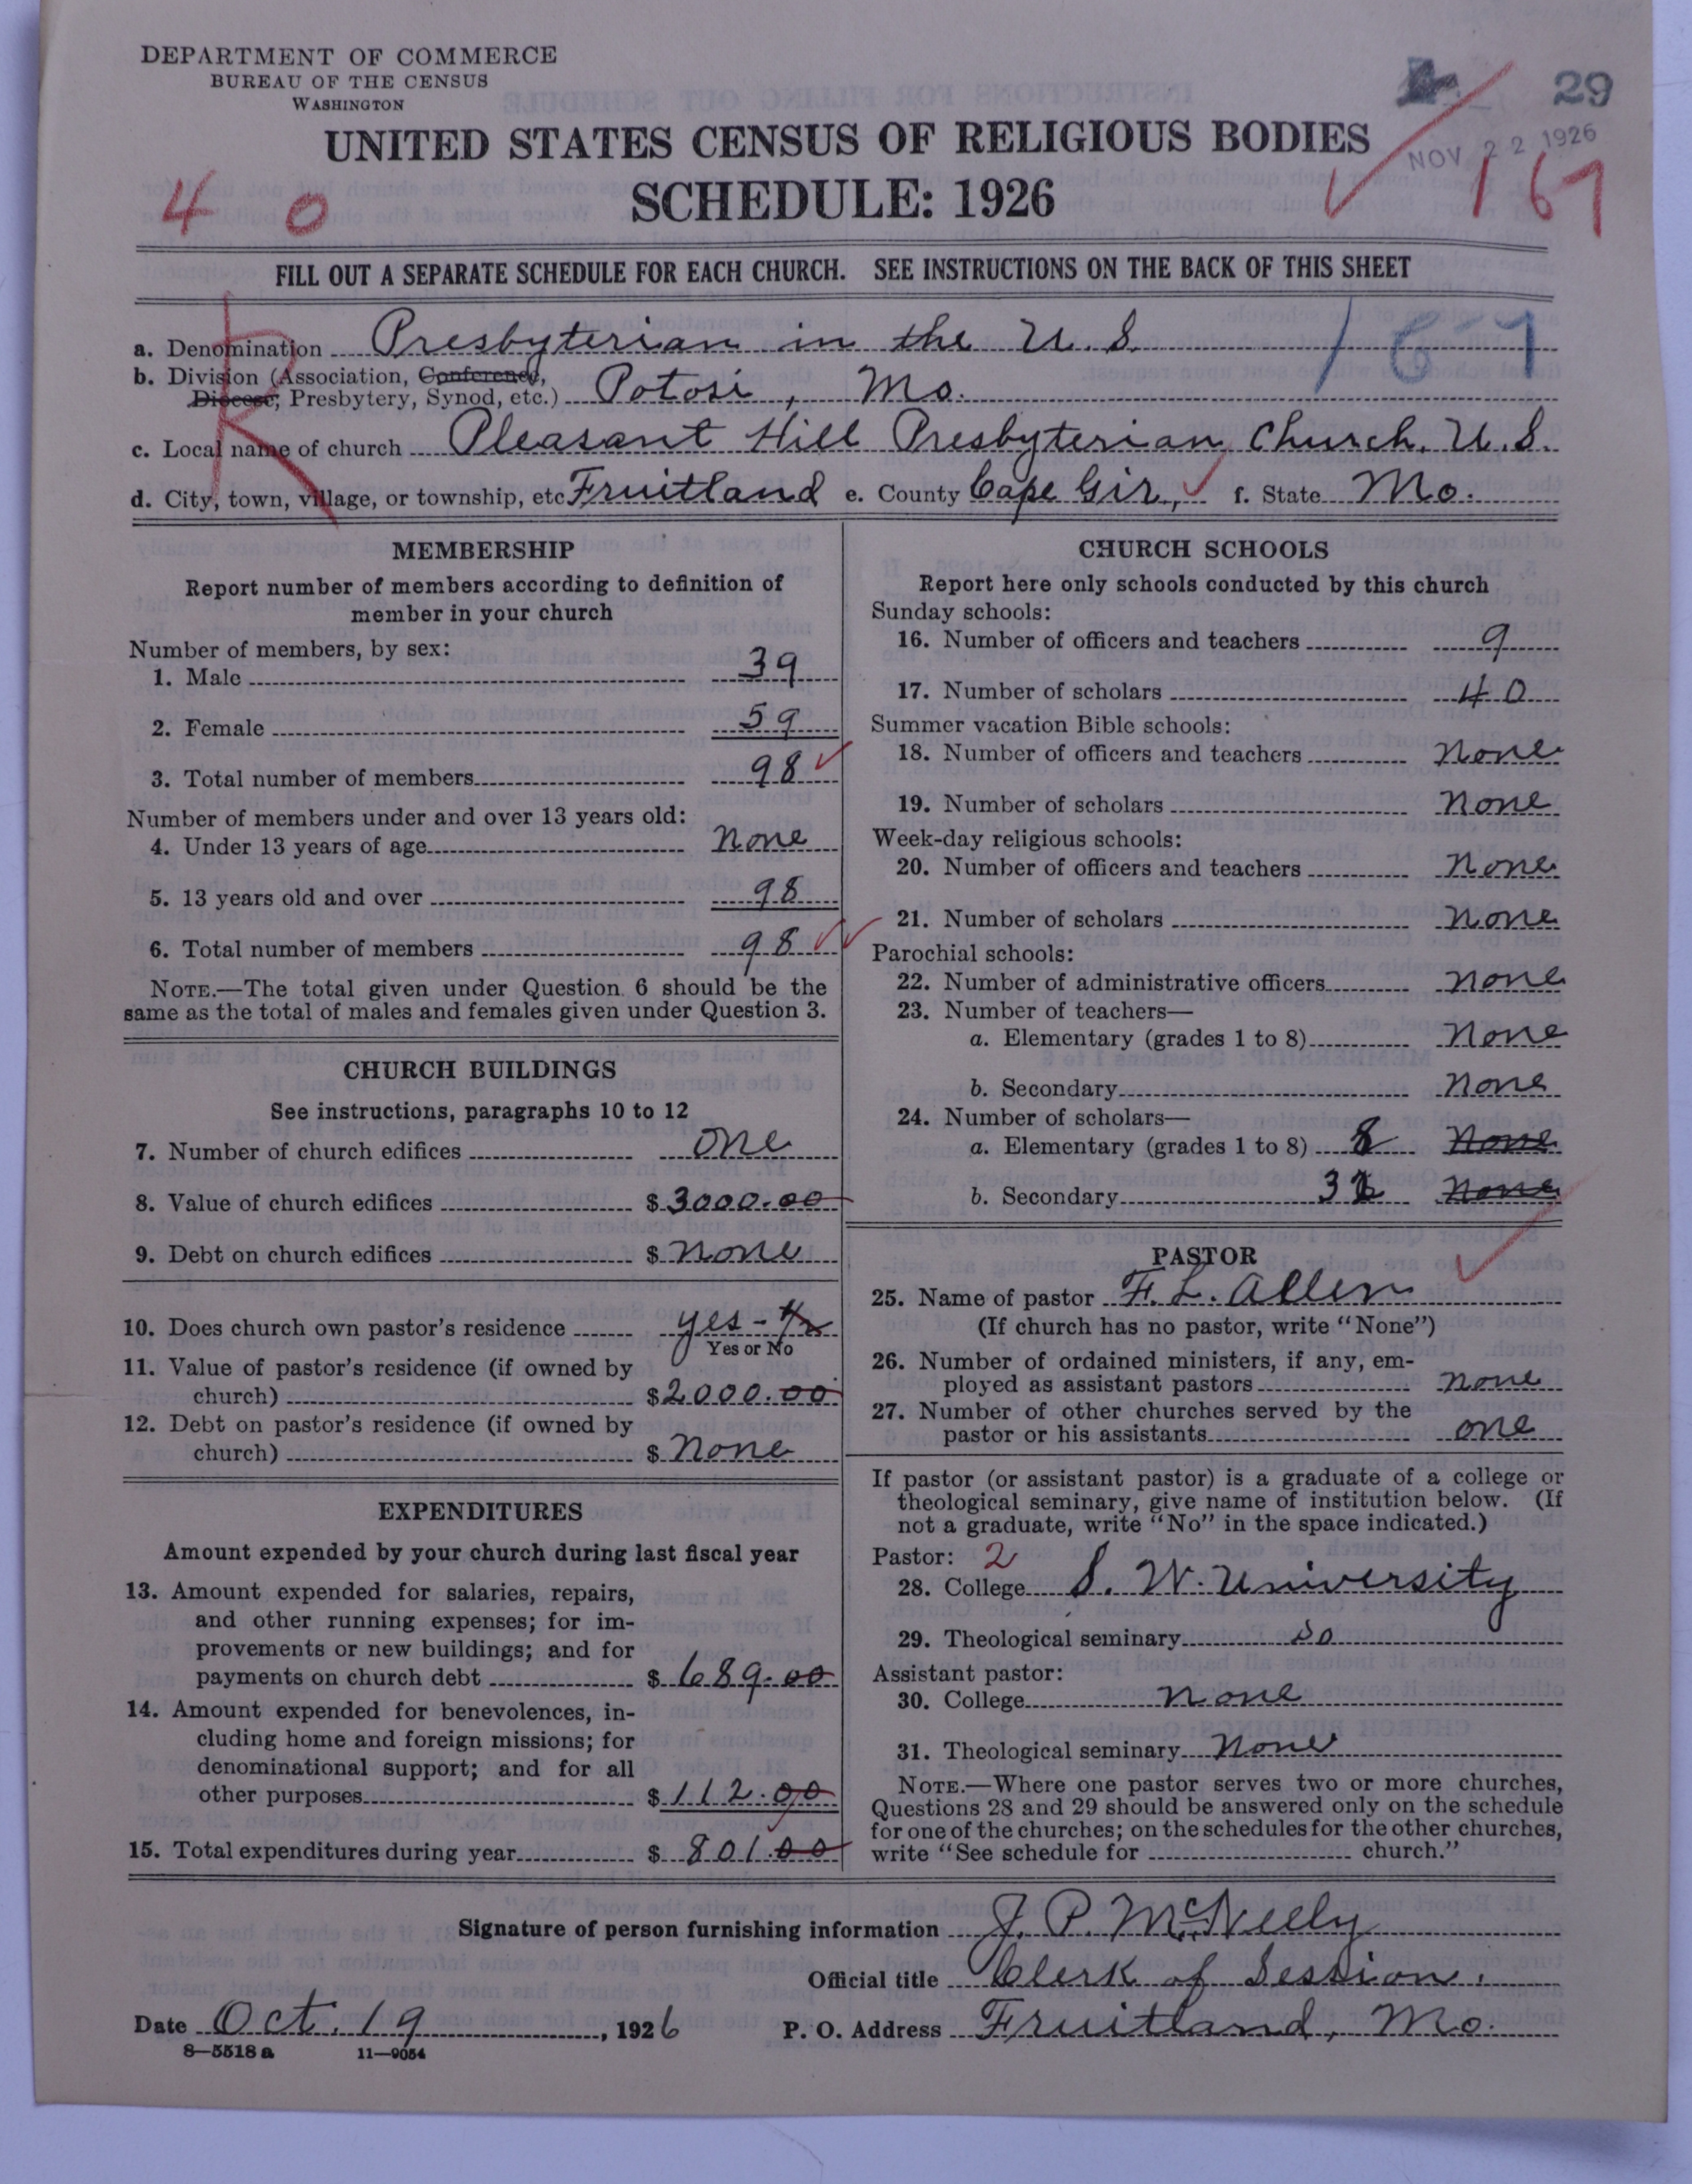 DEPARTMENT OF COMMERCE
BUREAU OF THE CENSUS
WASHINGTON
29
NOV 22 1926
UNITED STATES CENSUS OF RELIGIOUS BODIES
SCHEDULE: 1926
4 0
167
FILL OUT A SEPARATE SCHEDULE FOR EACH CHURCH. SEE INSTRUCTIONS ON THE BACK OF THIS SHEET
R
167
a. Denomination Presbyterian in the U.S.
b. Division (Association, Conference,
Diocese, Presbytery, Synod, etc.) Potosi, Mo.
c. Local name of church Pleasant Hill Presbyterian Church, U.S.
d. City, town, village, or township, etc Fruitland e. County Cape Gir, f. State Mo.
MEMBERSHIP
Report number of members according to definition of
member in your church
Number of members, by sex:
1. Male 39
2. Female 59
3. Total number of members 98
Number of members under and over 13 years old:
4. Under 13 years of age None
5. 13 years old and over 98
6. Total number of members 98
NOTE.—The total given under Question 6 should be the
same as the total of males and females given under Question 3.
CHURCH BUILDINGS
See instructions, paragraphs 10 to 12
7. Number of church edifices one
8. Value of church edifices $3000.00
9. Debt on church edifices $ none
10. Does church own pastor's residence yes - 1/2
Yes or No
11. Value of pastor's residence (if owned by
church) $2000.00
12. Debt on pastor's residence (if owned by
church) $ None
EXPENDITURES
Amount expended by your church during last fiscal year
13. Amount expended for salaries, repairs,
and other running expenses; for im-
provements or new buildings; and for
payments on church debt $ 689.00
14. Amount expended for benevolences, in-
cluding home and foreign missions; for
denominational support; and for all
other purposes $112.00
15. Total expenditures during year $ 801.00
CHURCH SCHOOLS
Report here only schools conducted by this church
Sunday schools:
16. Number of officers and teachers 9
17. Number of scholars 40
Summer vacation Bible schools:
18. Number of officers and teachers None
19. Number of scholars None
Week-day religious schools:
20. Number of officers and teachers None
21. Number of scholars None
Parochial schools:
22. Number of administrative officers None
23. Number of teachers—
a. Elementary (grades 1 to 8) None
b. Secondary None
24. Number of scholars—
a. Elementary (grades 1 to 8) 8 None
b. Secondary None
PASTOR
25. Name of pastor F. L. Allen
(If church has no pastor, write "None")
26. Number of ordained ministers, if any, em-
ployed as assistant pastors none
27. Number of other churches served by the
pastor or his assistants one
If pastor (or assistant pastor) is a graduate of a college or
theological seminary, give name of institution below. (If
not a graduate, write "No" in the space indicated.)
Pastor: 2
28. College S. W. University
29. Theological seminary Do
Assistant pastor:
30. College none
31. Theological seminary None
NOTE.—Where one pastor serves two or more churches,
Questions 28 and 29 should be answered only on the schedule
for one of the churches; on the schedules for the other churches,
write "See schedule for church."
Signature of person furnishing information J. P. McNeely
Official title Clerk of Session.
Date Oct. 19, 1926 P. O. Address Fruitland, Mo.
8—5518 a 11—9054